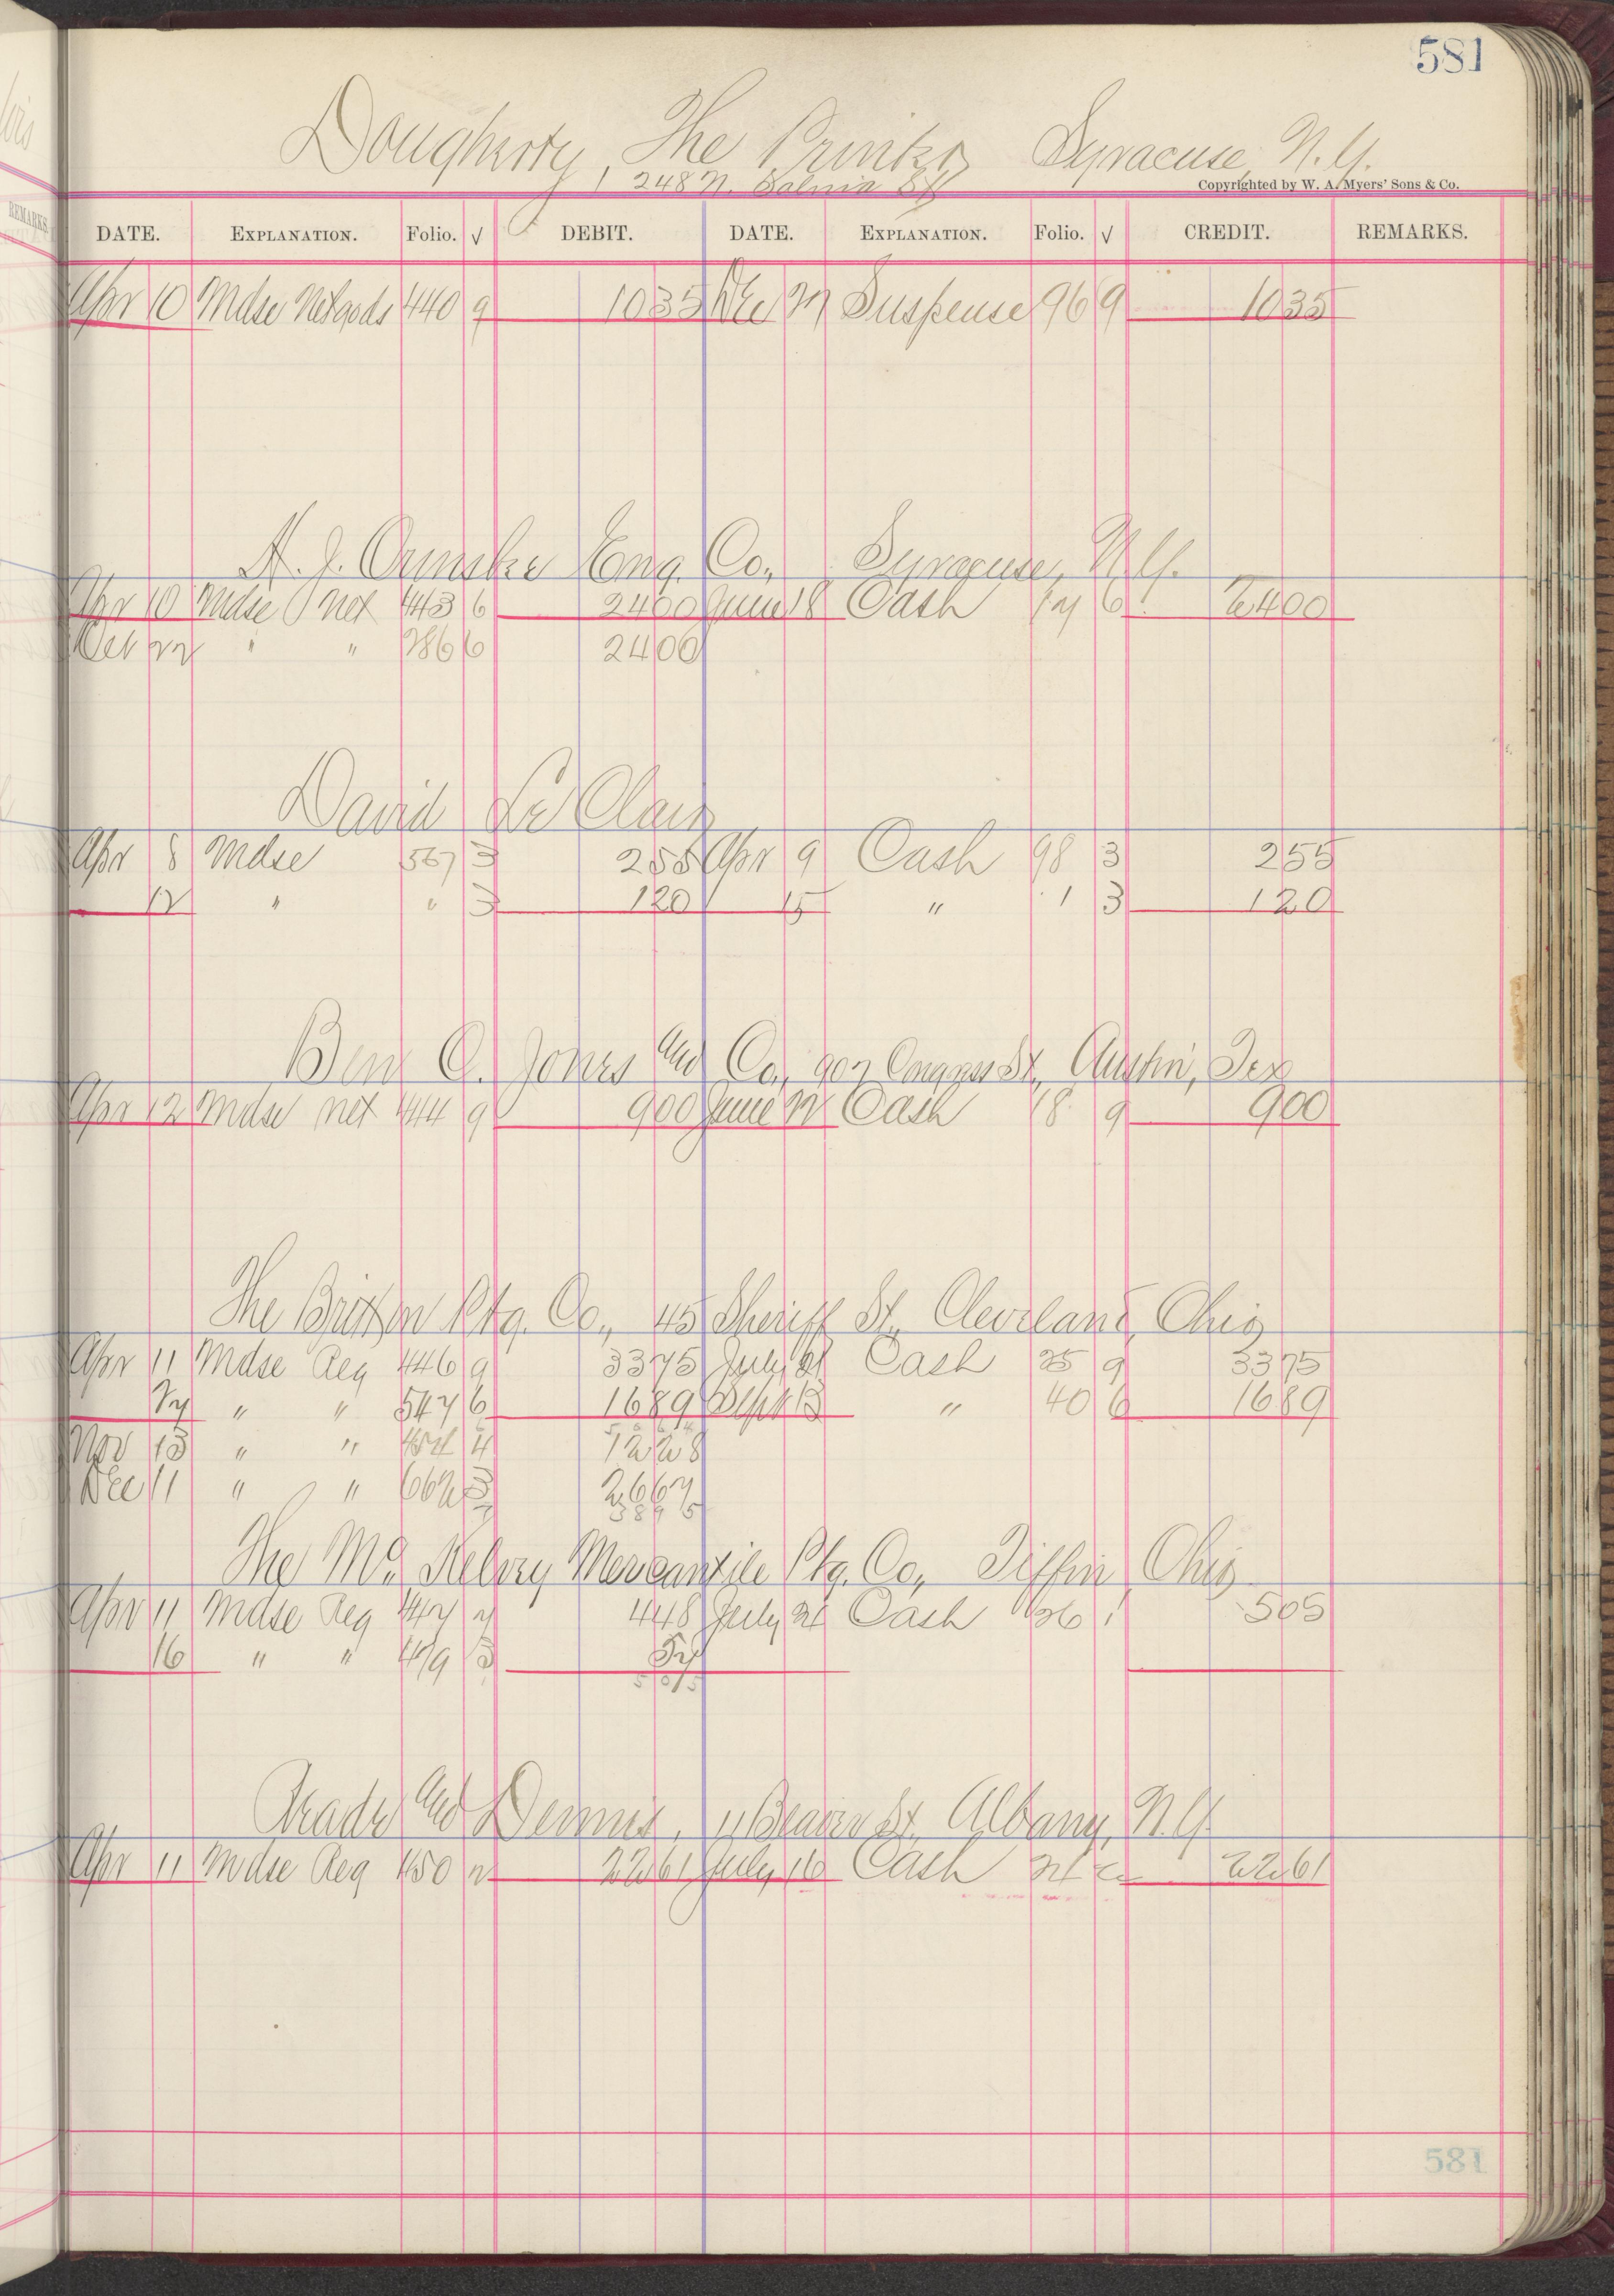 581
Dougherty, The Printer Syracuse, N.Y.
1248 N. Salina St
Copyrighted by W. A. Myers' Sons & Co.
DATE. EXPLANATION. Folio. √ DEBIT. DATE. EXPLANATION. Folio. √ CREDIT. REMARKS.
Apr 10 Mdse Net goods 440 9 1035 Dec Suspense 96 9 1035
A. J. Eng. Co., Syracuse, N.Y.
Apr 10 Mdse net 443 6 2400 June 18 Cash 17 6 2400
Oct 22 " " 286 6 2400
David Le Clair
Apr 8 Mdse 567 3 255 Apr 9 Cash 98 3 255
12 " " 3 120 15 " 1 3 120
Ben C. Jones and Co., 907 Congress St., Austin, Tex
Apr 12 Mdse net 444 9 900 June 22 Cash 18 9 900
The Britton Ptg. Co., 45 Sheriff St., Cleveland, Ohio
Apr 11 Mdse Reg 446 9 3375 July 21 Cash 25 9 3375
27 " " 547 6 1689 Sept 13 " 40 6 1689
Nov 13 " " 454 4 1228
Dec 11 " " 662 3 2667
3895
The Mc Kelvey Mercantile Ptg. Co., Tiffin, Ohio
Apr 11 Mdse Reg 447 2 448 July 21 Cash 26 1 505
16 " " 479 3 57
505
and Dennis, 11 Beaver St. Albany, N.Y.
Apr 11 Mdse Reg 450 2 2261 July 16 Cash 24 2 2261
581